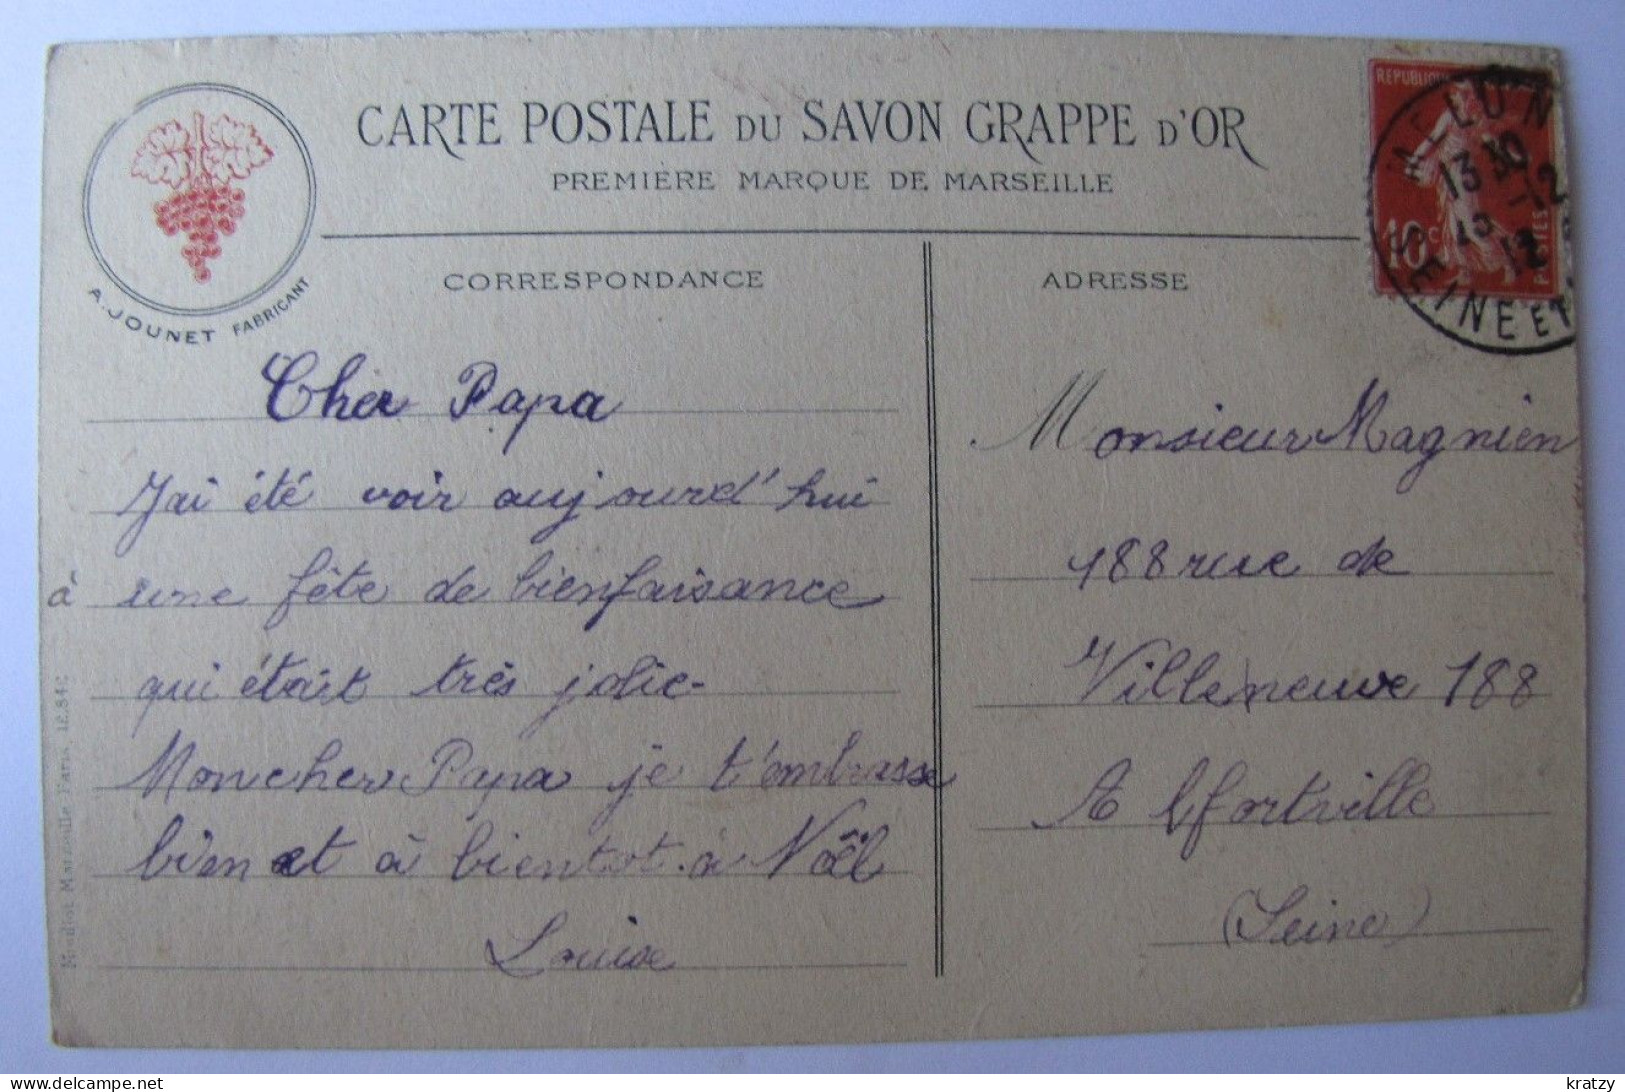 CARTE POSTALE DU SAVON GRAPPE D'OR
PREMIÈRE MARQUE DE MARSEILLE
A. JOUNET FABRICANT
REPUBLIQUE
10c
POSTES
MELUN
13 30
-12
12
SEINE ET
CORRESPONDANCE
Cher Papa
J'ai été voir aujourd'hui
à une fête de bienfaisance
qui était très jolie-
Mon cher Papa je t'embrasse
bien et à bientot. à Noël
Louise
ADRESSE
Monsieur Magnien
188 rue de
Villeneuve 188
Alfortville
(Seine)
Marseille Paris,
kratzy